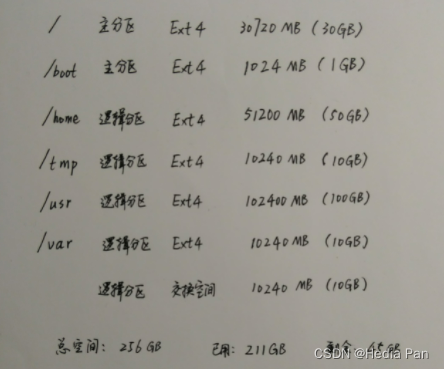 / 主分区 Ext4 30720 MB (30GB)
/boot 主分区 Ext4 1024 MB (1GB)
/home 逻辑分区 Ext4 51200 MB (50GB)
/tmp 逻辑分区 Ext4 10240 MB (10GB)
/usr 逻辑分区 Ext4 102400 MB (100GB)
/var 逻辑分区 Ext4 10240 MB (10GB)
逻辑分区 交换空间 10240 MB (10GB)
总空间: 256GB 已用: 211GB
CSDN @Hedia Pan